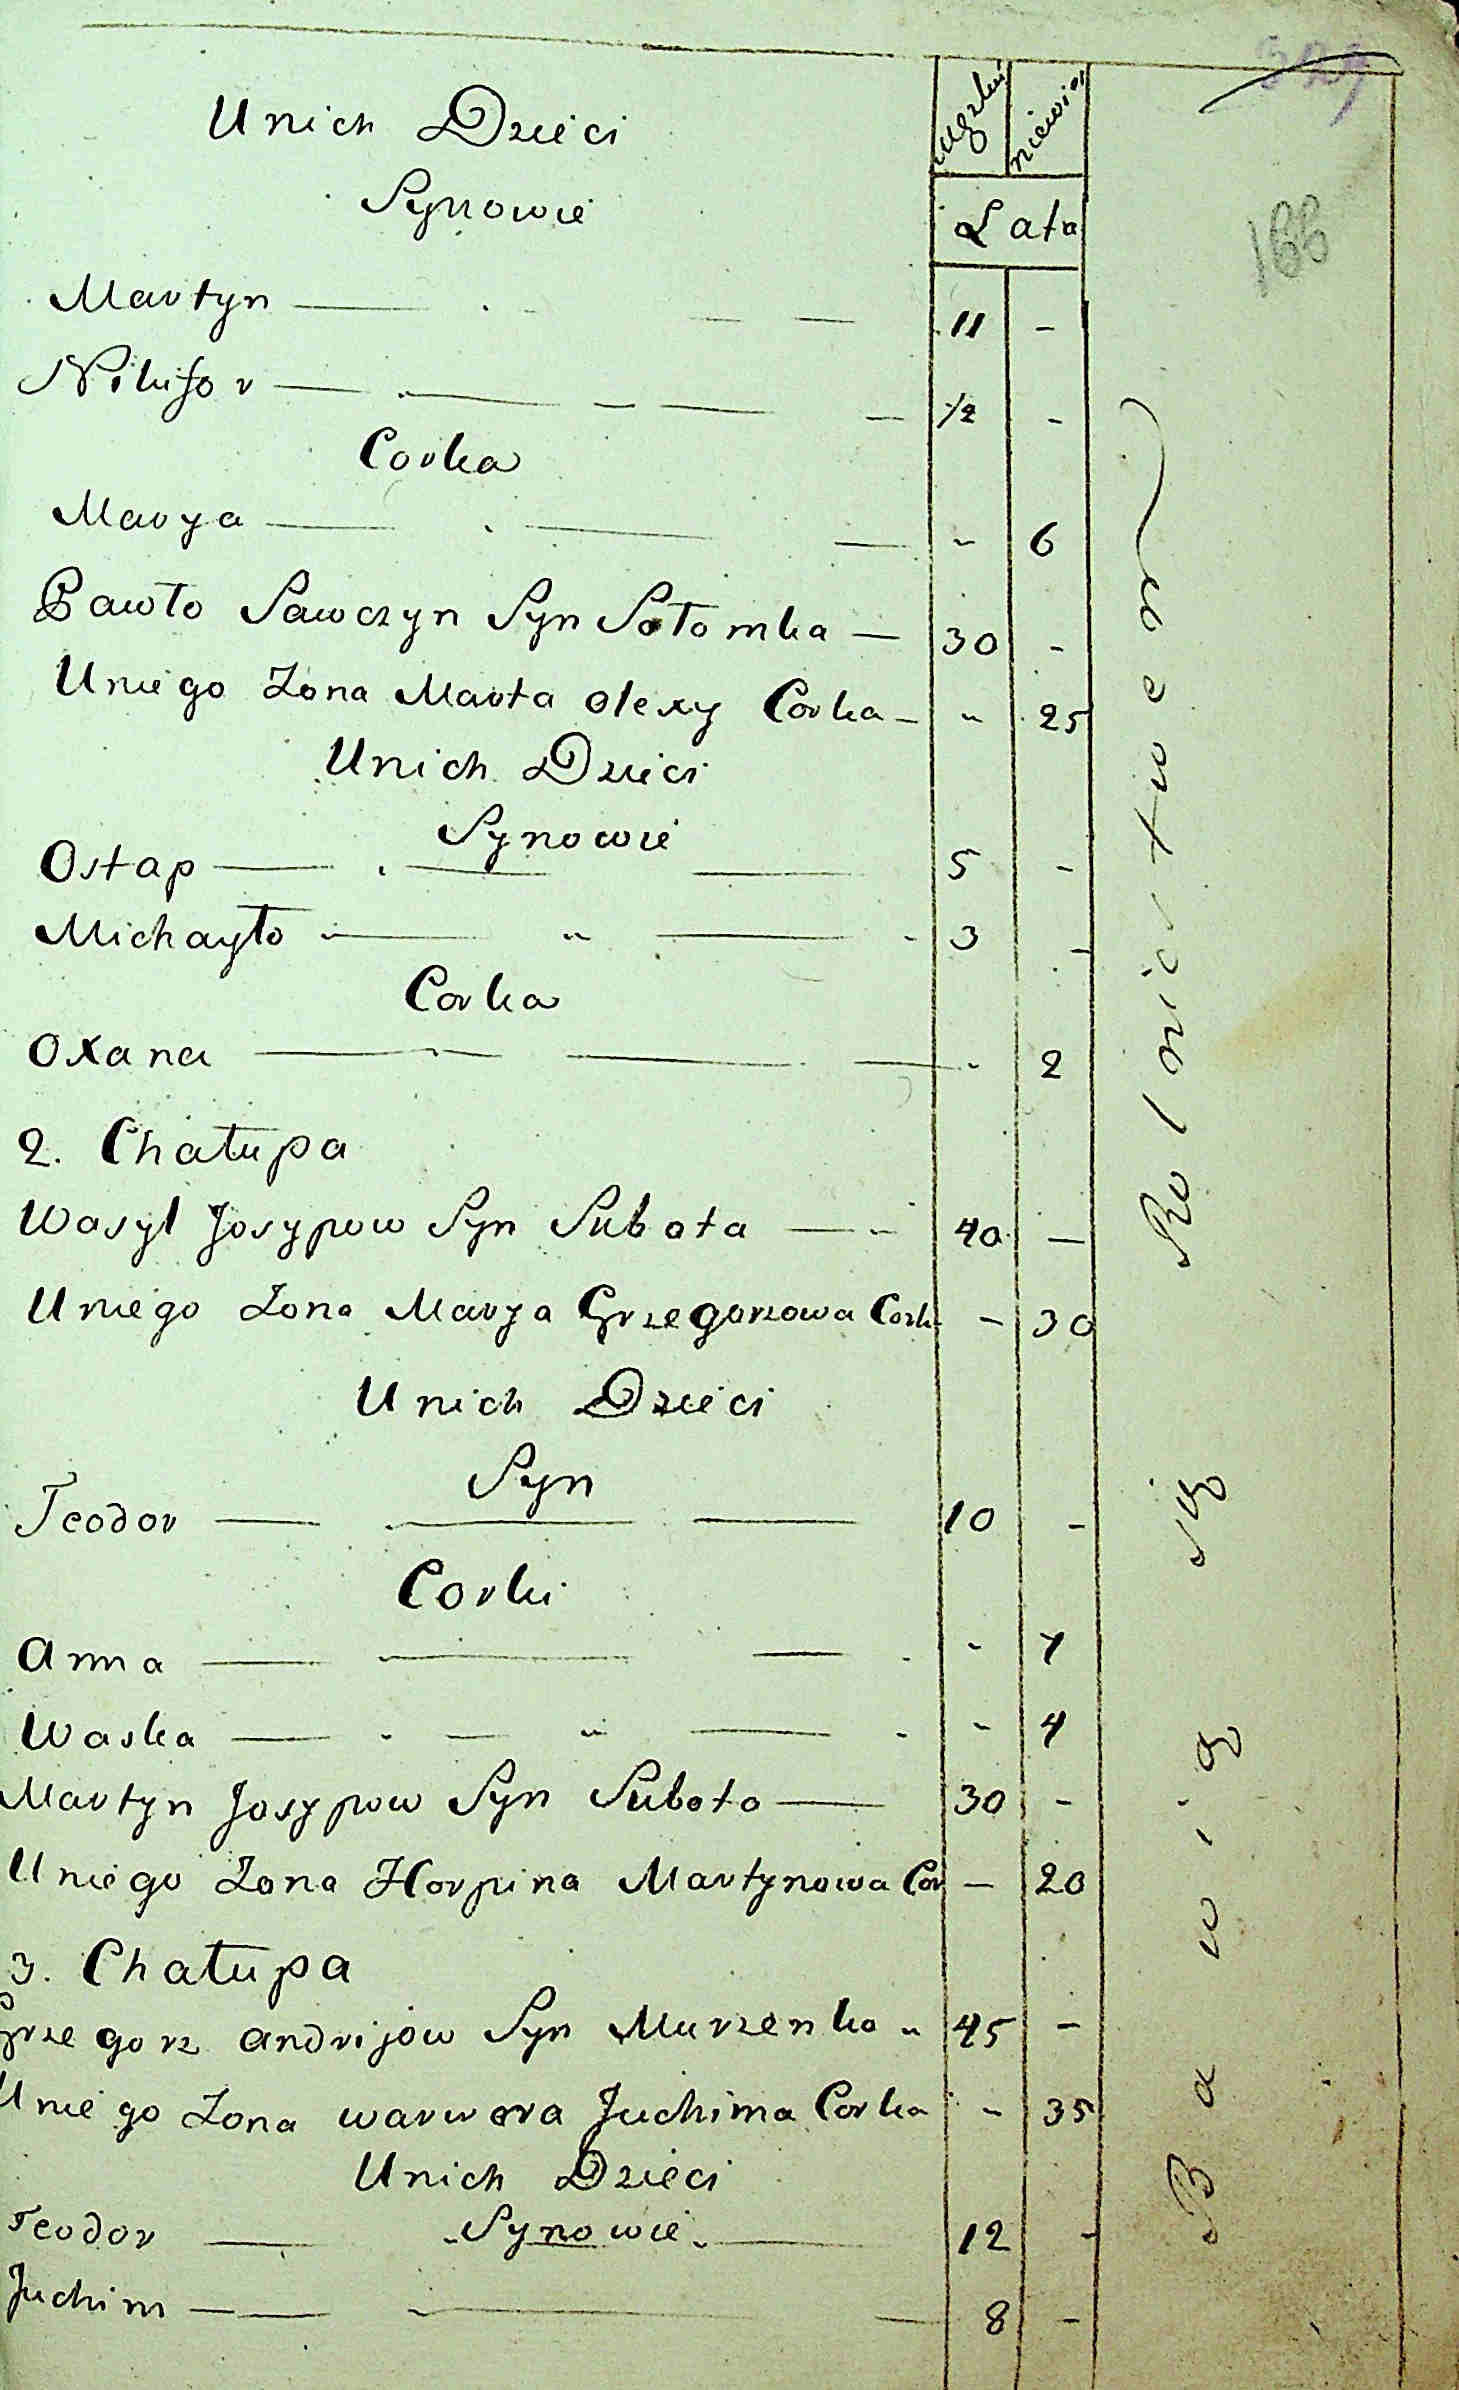 Unich Dzieci
Synowie
Lata
Martyn — 11 -
Nikifor — 1/2 -
Corka
Marya — - 6
Pawło Sawczyn Syn Sołomka — 30 -
Uniego Zona Marta Olexy Corka - " 25
Unich Dzieci
Synowie
Ostap — 5 -
Michayło — 3 -
Corka
Oxana — - 2
2. Chałupa
Wasyl Josypow Syn Subota — 40 —
Uniego Zona Marya Grzegorzowa Cork - 30
Unich Dzieci
Syn
Teodor — 10 -
Corki
Anna — - 7
Waska — - 4
Martyn Josypow Syn Subota — 30 -
Uniego Zona Horpina Martynowa Cor — 20
3. Chałupa
Grzegorz Andrijow Syn Murzenko " 45 -
Uniego Zona Warwara Juchima Corka - 35
Unich Dzieci
Teodor — Synowie — 12 -
Juchim — 8 -
Bawią się Rolnictwem
166